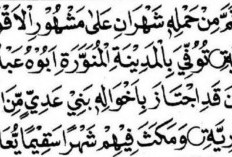 مَّ مِنْ حَمْلِهٖ شَهْرَانِ عَلٰى مَشْهُوْرِ الْاَقْو
تُوُفِّيَ بِالْمَدِيْنَةِ الْمُنَوَّرَةِ اَبُوْهُ عَبْدُ
نَ قَدِ اجْتَازَ بِاَخْوَالِهٖ بَنِيْ عَدِيٍّ مِّنَ ا
رِيَّةِ وَمَكَثَ فِيْهِمْ شَهْرًا سَقِيْمًا يُّعَا